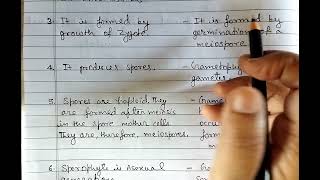 3. It is formed by - It is formed by
growth of Zygote. germination of a
meiospore
4. It produces spores. - Gametoph
gametes
5. Spores are haploid. They - Game
are formed after meiosis
in the spore mother cells. occu
They are, therefore, meiospores. form
m
6. Sporophyte is asexual - G